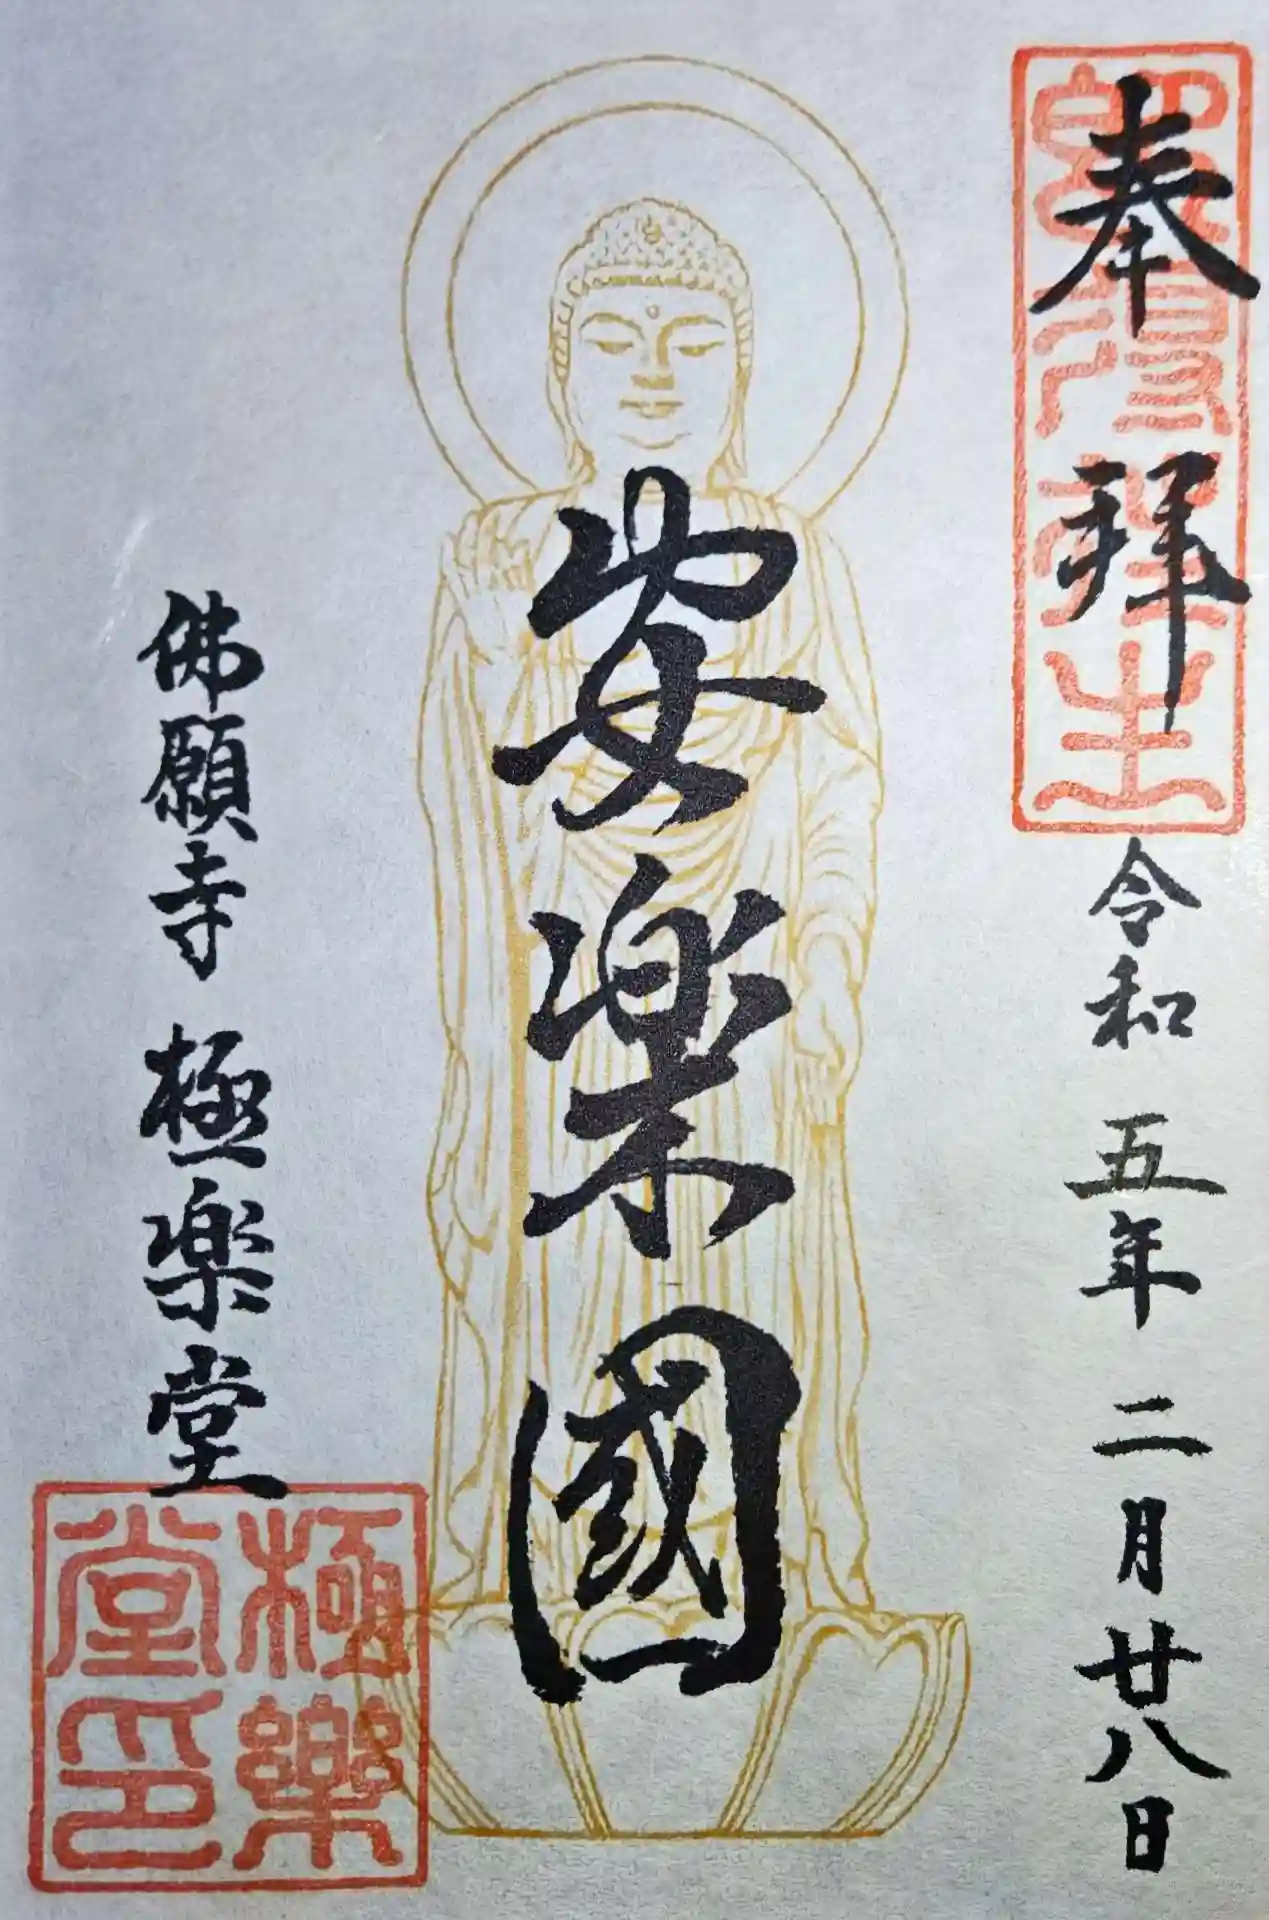 奉拜
令和五年二月廿八日
安楽國
佛願寺 極楽堂
極樂
堂印